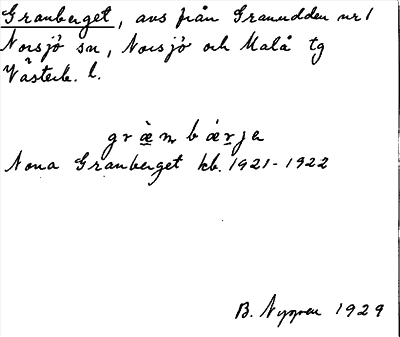 Granberget, avs från Granudden nr 1
Norsjö sn, Norsjö och Malå tg
Västerb. l.
græ̀n bǽrje
Norra Granberget kb. 1921-1922
B. Nygren 1929